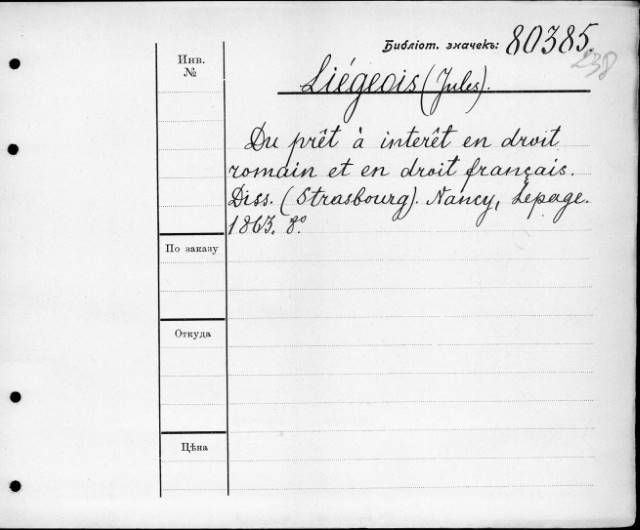 Библіот. значекъ: 80385.
238
Инв.
№
Liégeois (Jules).
Du prêt à interêt en droit
romain et en droit français.
Diss. (Strasbourg). Nancy, Lepage.
1863. 8º
По заказу
Откуда
Цѣна